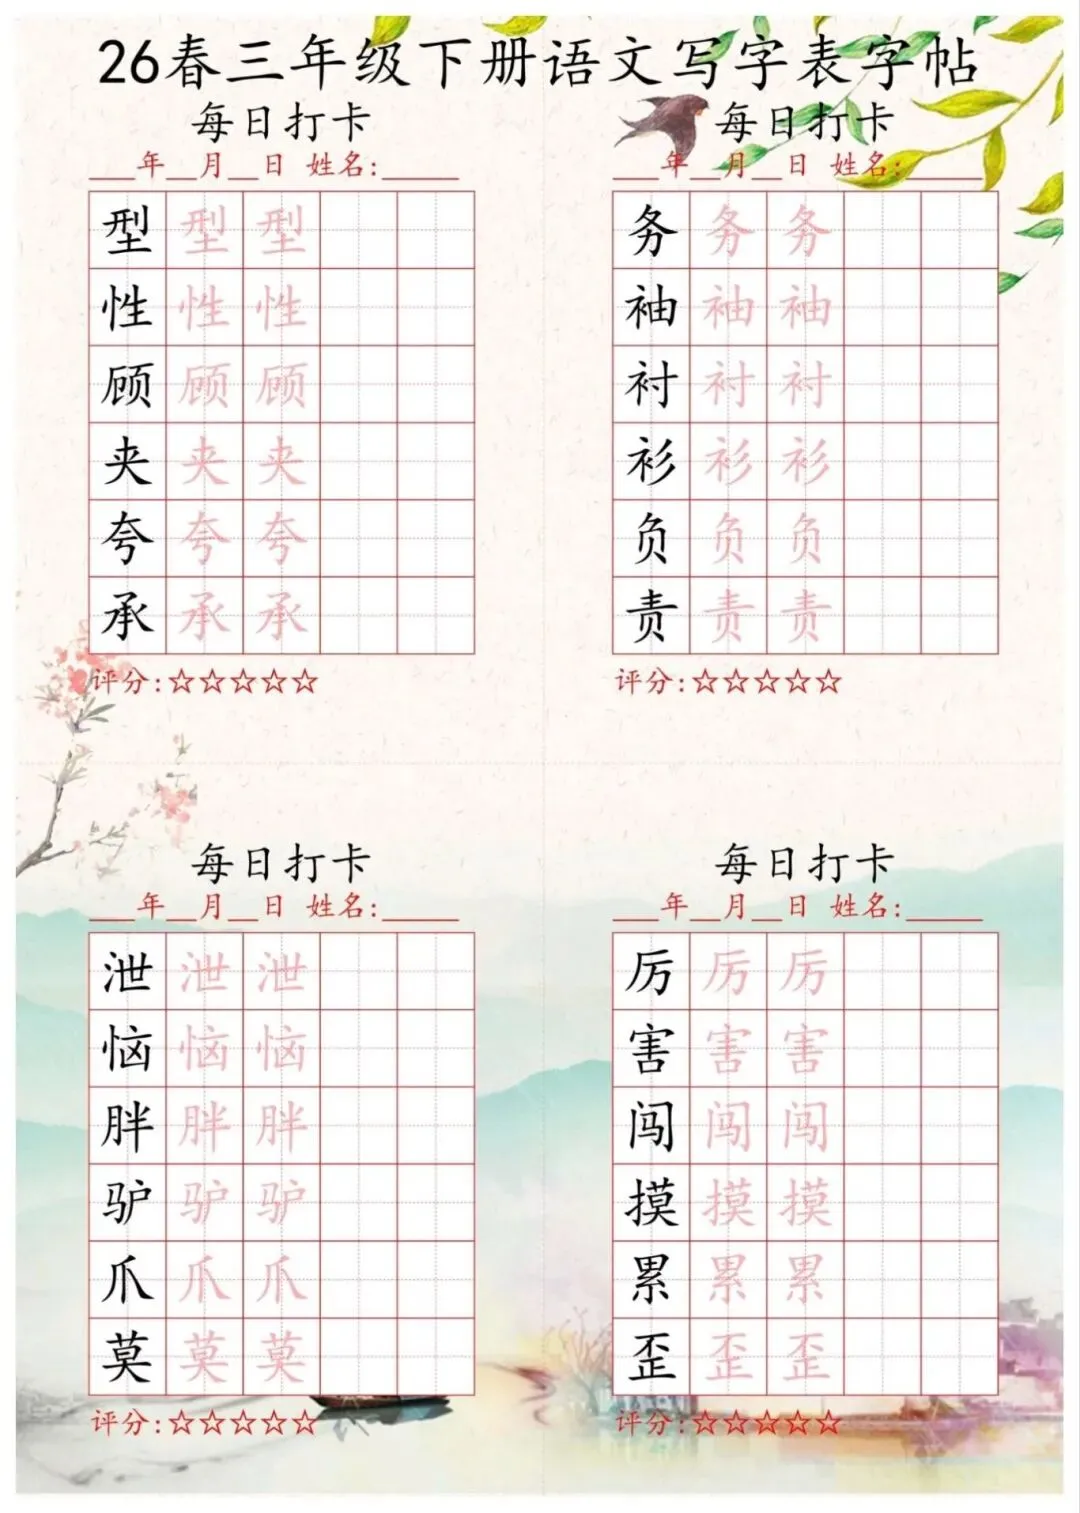 26春三年级下册语文写字表字帖
每日打卡
___年__月__日 姓名:_____
型 型 型
性 性 性
顾 顾 顾
夹 夹 夹
夸 夸 夸
承 承 承
评分:☆☆☆☆☆
每日打卡
___年__月__日 姓名:_____
务 务 务
袖 袖 袖
衬 衬 衬
衫 衫 衫
负 负 负
责 责 责
评分:☆☆☆☆☆
每日打卡
___年__月__日 姓名:_____
泄 泄 泄
恼 恼 恼
胖 胖 胖
驴 驴 驴
爪 爪 爪
莫 莫 莫
评分:☆☆☆☆☆
每日打卡
___年__月__日 姓名:_____
厉 厉 厉
害 害 害
闯 闯 闯
摸 摸 摸
累 累 累
歪 歪 歪
评分:☆☆☆☆☆